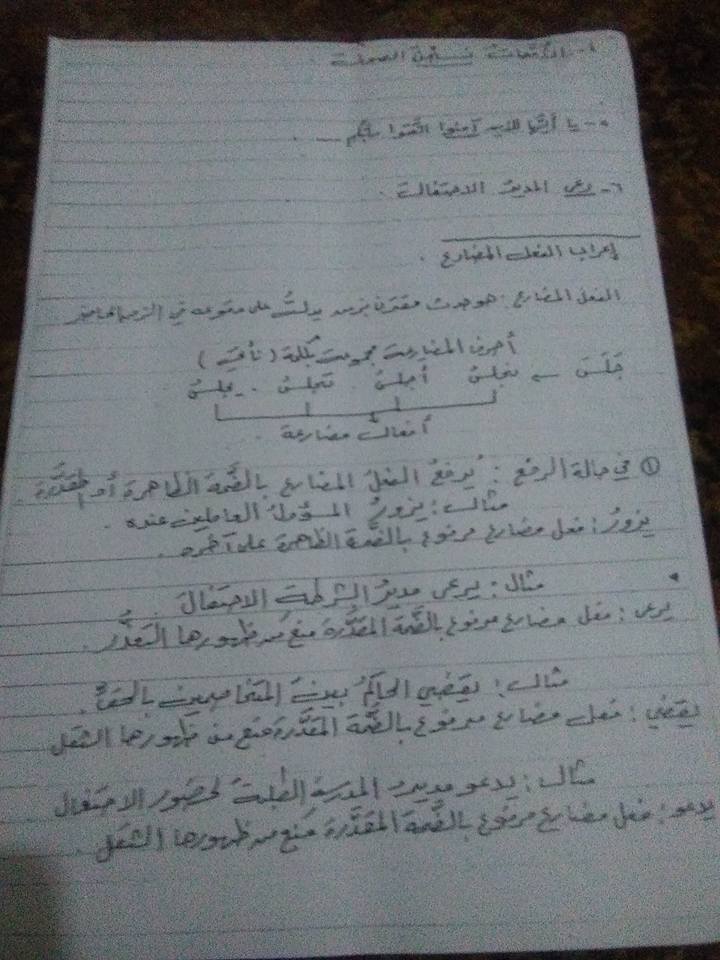 ٤- الأمهات يسهرن
٥- يا أيُّها الذين آمنوا اتَّقوا ربَّكم
٦- رعى المدير الاحتفال .
إعراب الفعل المضارع .
الفعل المضارع : هو حدث مقترن بزمن يدلُّ على وقوعه في الزمن الحاضر
أحرف المضارعة مجموعة بكلمة ( نأتي )
جَلَسَ ← نجلسُ أجلسُ تجلسُ . يجلسُ
أفعال مضارعة .
① في حالة الرفع : يُرفعُ الفعلُ المضارع بالضَّمة الظاهرة أو المقدَّرة .
مثال : يزورُ المسؤولُ العاملين عنده .
يزورُ : فعل مضارع مرفوع بالضَّمة الظاهرة على آخره .
مثال : يرعى مديرُ الشرطةِ الاحتفالَ .
يرعى : فعل مضارع مرفوع بالضَّمة المقدَّرة منع من ظهورها التعذُّر .
مثال : يقضي الحاكمُ بينَ المتخاصمين بالحقِّ .
يقضي : فعل مضارع مرفوع بالضَّمة المقدَّرة منع من ظهورها الثقل
مثال : يدعو مديرُ المدرسةِ الطلبةَ لحضور الاحتفال
يدعو : فعل مضارع مرفوع بالضَّمة المقدَّرة مَنع من ظهورها الثقل .